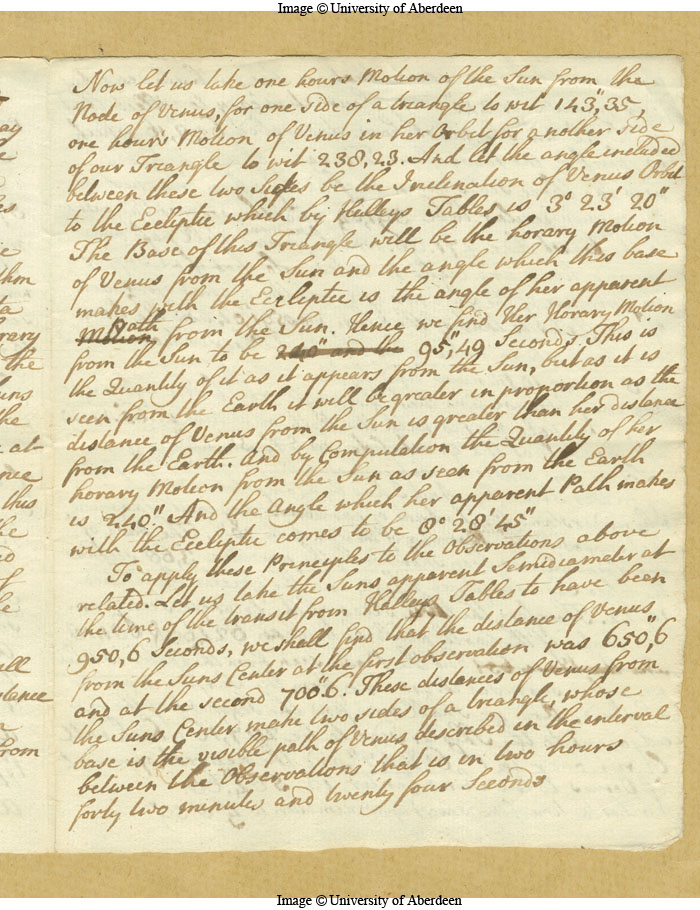 Image © University of Aberdeen
Now let us take one hours Motion of the Sun from the
Node of Venus, for one Side of a triangle to wit 143",35,
one hour's Motion of Venus in her Orbit for another Side
of our Triangle to wit 238,23. And let the angle included
between these two Sides be the Inclination of Venus Orbit
to the Ecliptic which by Halleys Tables is 3° 23' 20"
The Base of this Triangle will be the horary Motion
of Venus from the Sun and the angle which this base
makes with the Ecliptic is the angle of her apparent
Motion Path from the Sun. Hence we find Her Horary Motion
from the Sun to be 240" and the 95",49 Seconds. This is
the Quantity of it as it appears from the Sun, but as it is
seen from the Earth it will be greater in proportion as the
distance of Venus from the Sun is greater than her distance
from the Earth. And by Computation the Quantity of her
horary Motion from the Sun as seen from the Earth
is 240." And the Angle which her apparent Path makes
with the Ecliptic comes to be 8° 28' 45"
To apply these Principles to the Observations above
related. Let us take the Suns apparent Semidiameter at
the time of the transit from Halleys Tables to have been
950,6 Seconds, we shall find that the distance of Venus
from the Suns Center at the first observation was 650",6
and at the second 700"6. These distances of Venus from
the Suns Center make two sides of a triangle, whose
base is the visible path of Venus described in the interval
between the Observations that is in two hours
forty two minutes and twenty four Seconds
ay
s
ie
thm
ta
rary
the
ns
the
at-
nce
this
he
of
le
all
istance
n
from
Image © University of Aberdeen